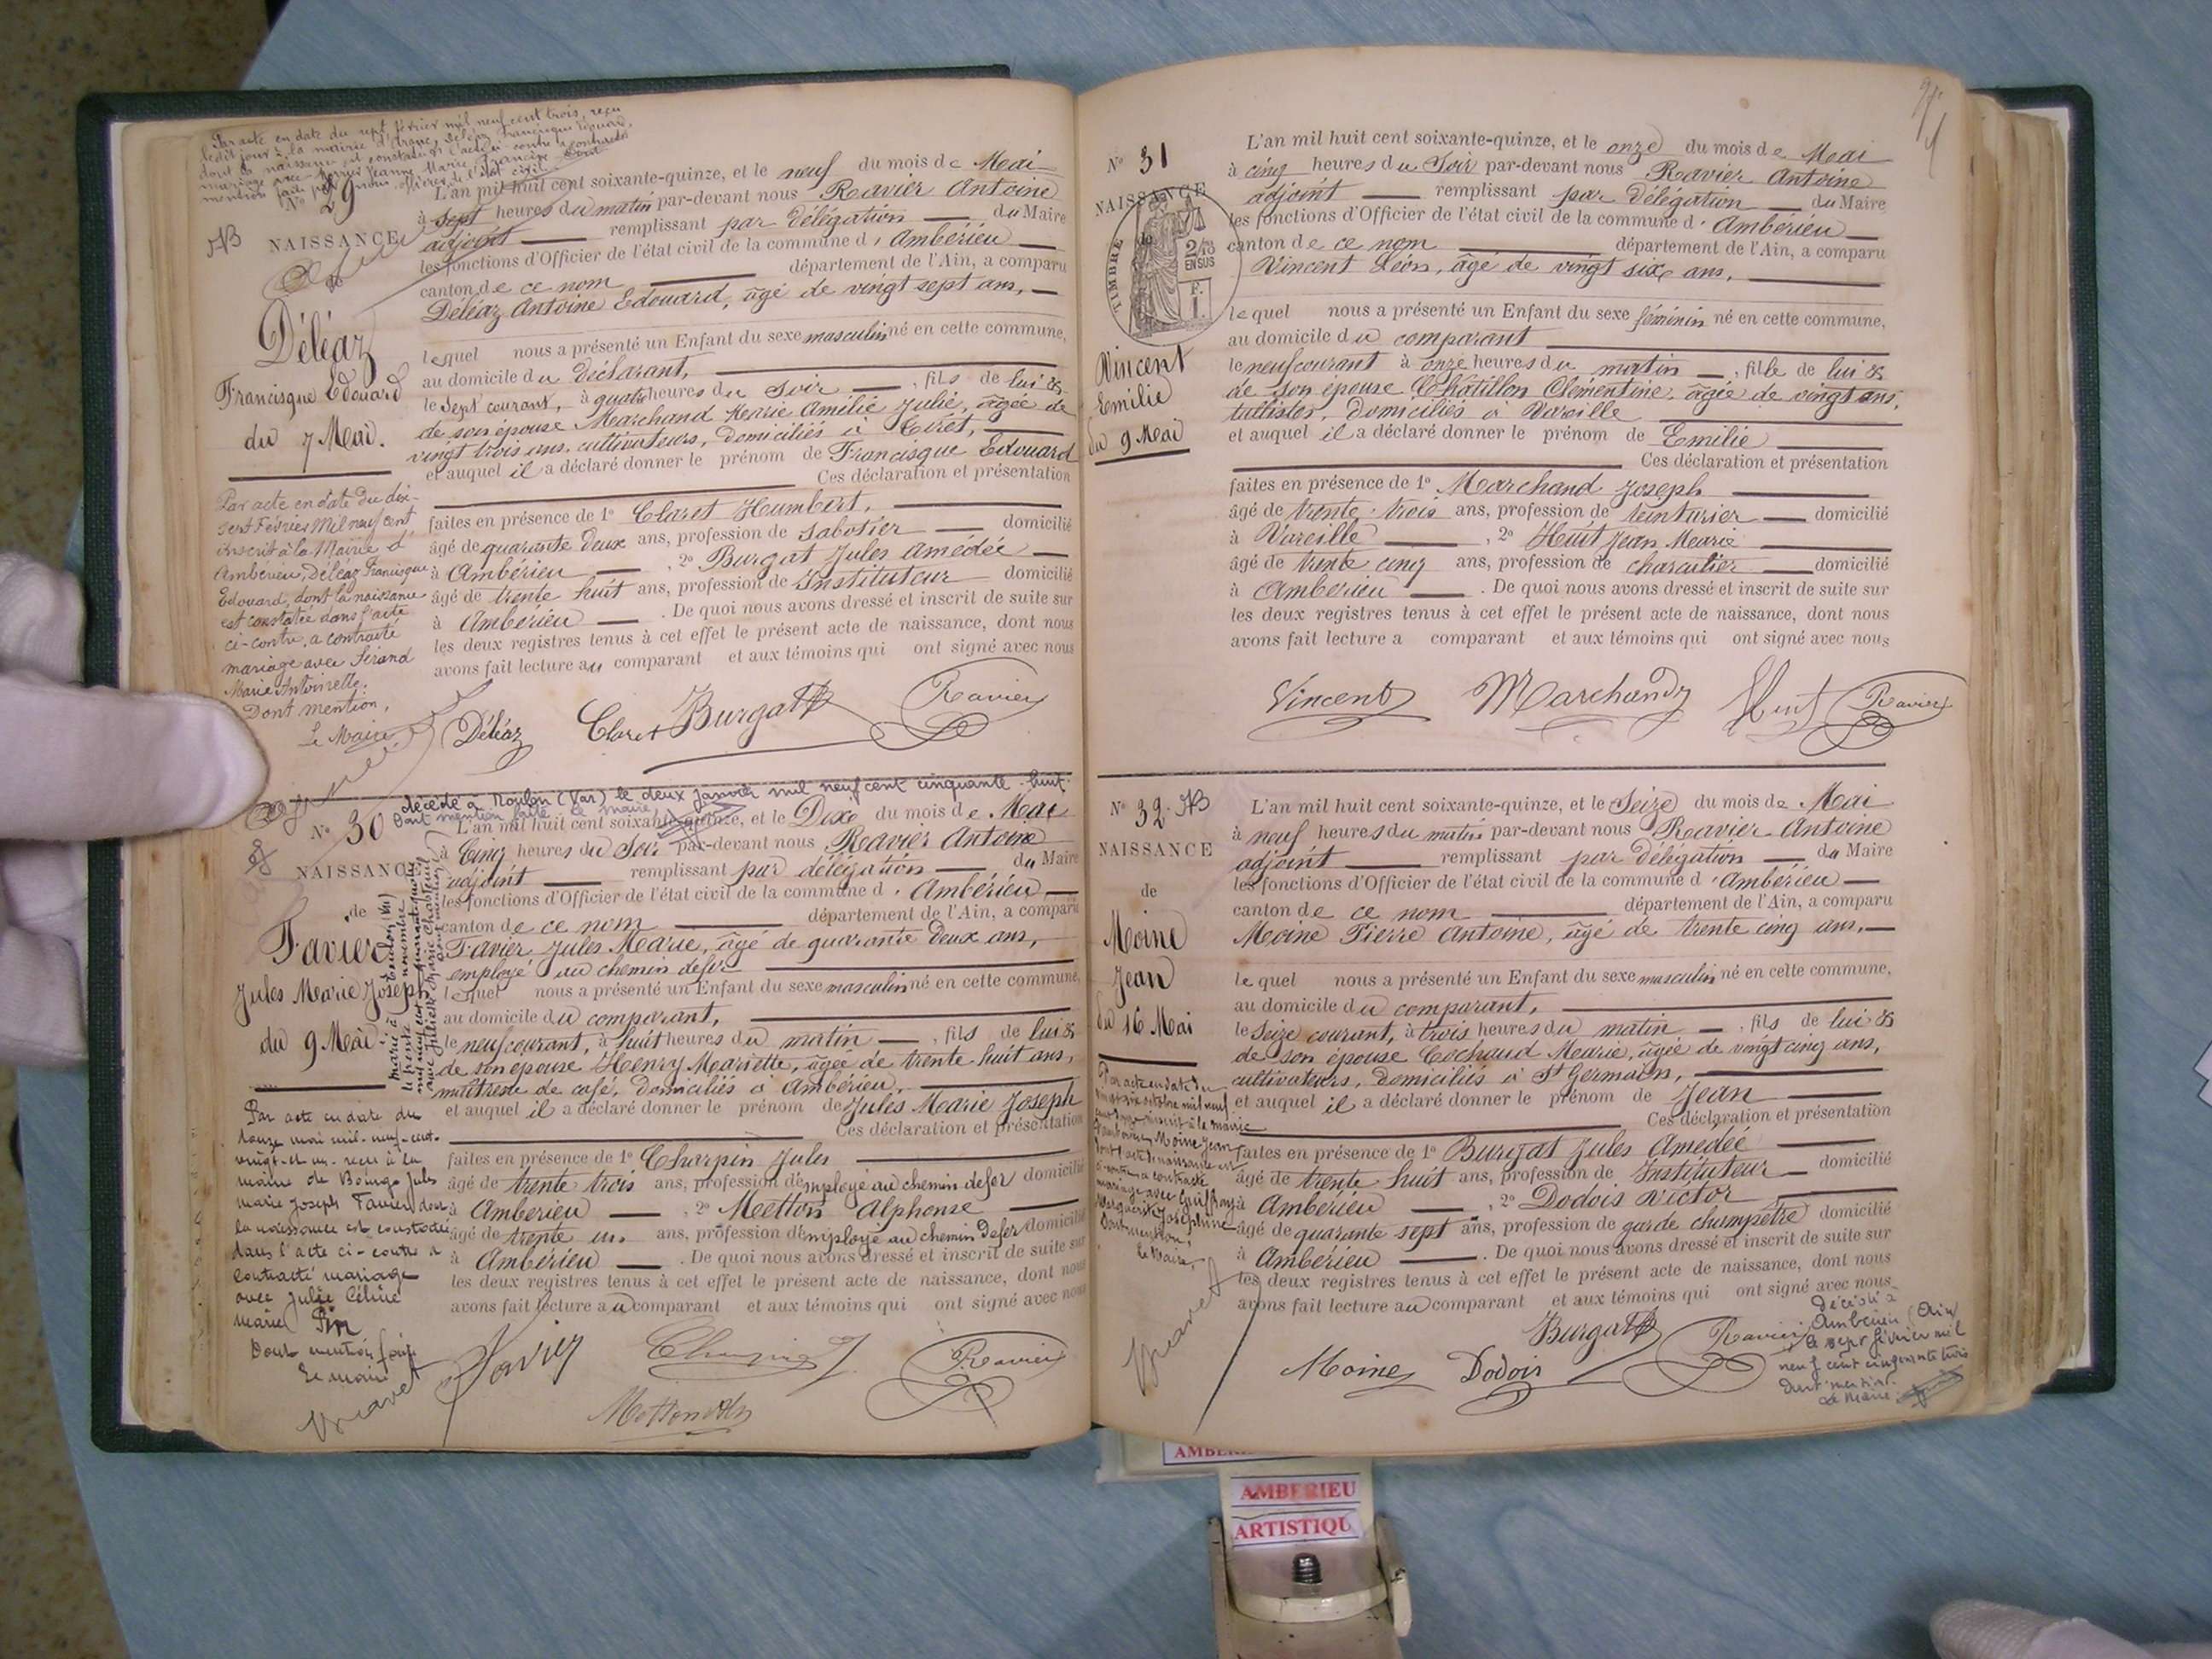 Par acte en date du sept février mil neuf cent trois, reçu
ledit jour à la mairie d'
dont la naissance est constatée
mariage avec Jeanne Marie Francine Dont
mention faite par nous officier de l'état civil
N° 29
NAISSANCE
de
Déléaz
Francisque Edouard
du 7 Mai.
L'an mil huit cent soixante-quinze, et le neuf du mois de Mai
à sept heures du matin par-devant nous Ravier Antoine
adjoint remplissant par délégation du Maire
les fonctions d'Officier de l'état civil de la commune d'Ambérieu
canton de ce nom département de l'Ain, a comparu
Déléaz Antoine Edouard, âgé de vingt sept ans,
lequel nous a présenté un Enfant du sexe masculin né en cette commune,
au domicile du déclarant,
le sept courant, à quatre heures du soir, fils de lui &
de son épouse Marchand Marie Amélie Julie, âgée de
vingt trois ans, cultivateurs, domiciliés à Tiret,
et auquel il a déclaré donner le prénom de Francisque Edouard
Ces déclaration et présentation
faites en présence de 1° Claret Humbert,
âgé de quarante deux ans, profession de sabotier domicilié
à Ambérieu, 2° Burgat Jules Amédée
âgé de trente huit ans, profession de Instituteur domicilié
à Ambérieu. De quoi nous avons dressé et inscrit de suite sur
les deux registres tenus à cet effet le présent acte de naissance, dont nous
avons fait lecture au comparant et aux témoins qui ont signé avec nous
Par acte en date du dix-
sept Février Mil neuf cent,
inscrit à la Mairie d'
Ambérieu, Déléaz Francisque
Edouard, dont la naissance
est constatée dans l'acte
ci-contre, a contracté
mariage avec Férand
Marie Antoinette.
Dont mention,
Le Maire,
Déléaz Claret Burgat Ravier
décédé à Toulon (Var) le deux janvier mil neuf cent cinquante-huit.
Dont mention faite le maire,
N° 30
NAISSANCE
de
Favier
Jules Marie Joseph
du 9 Mai
L'an mil huit cent soixante-quinze, et le Dix du mois de Mai
à Cinq heures du Soir par-devant nous Ravier Antoine
adjoint remplissant par délégation du Maire
les fonctions d'Officier de l'état civil de la commune d'Ambérieu
canton de ce nom département de l'Ain, a comparu
Favier Jules Marie, âgé de quarante deux ans,
employé au chemin de fer
lequel nous a présenté un Enfant du sexe masculin né en cette commune,
au domicile du comparant,
le neuf courant, à huit heures du matin, fils de lui &
de son épouse Henry Mariette, âgée de trente huit ans,
maîtresse de café, domiciliés à Ambérieu,
et auquel il a déclaré donner le prénom de Jules Marie Joseph
Ces déclaration et présentation
faites en présence de 1° Charpin Jules
âgé de trente trois ans, profession d'employé au chemin de fer domicilié
à Ambérieu, 2° Metton Alphonse
âgé de trente un ans, profession d'employé au chemin de fer domicilié
à Ambérieu. De quoi nous avons dressé et inscrit de suite sur
les deux registres tenus à cet effet le présent acte de naissance, dont nous
avons fait lecture au comparant et aux témoins qui ont signé avec nous
marié à Toulon (Var)
Par acte en date du
douze mai mil-neuf-cent-
vingt-et-un reçu à la
mairie de Jules
Marie Joseph Favier dont
la naissance est constatée
dans l'acte ci-contre a
contracté mariage
avec Julie Céline
Marie Pin
Dont mention faite
Le maire
Favier Charpin Ravier
Metton
N° 31
NAISSANCE
de
TIMBRE
2/10 EN SUS
F. 1.
Vincent
Emilie
du 9 Mai
L'an mil huit cent soixante-quinze, et le onze du mois de Mai
à cinq heures du Soir par-devant nous Ravier Antoine
adjoint remplissant par délégation du Maire
les fonctions d'Officier de l'état civil de la commune d'Ambérieu
canton de ce nom département de l'Ain, a comparu
Vincent Léon, âgé de vingt six ans,
lequel nous a présenté un Enfant du sexe féminin né en cette commune,
au domicile du comparant
le neuf courant à onze heures du matin, fille de lui &
de son épouse Chatillon Clémentine, âgée de vingt ans,
tullistes, domiciliés à Vareille
et auquel il a déclaré donner le prénom de Emilie
Ces déclaration et présentation
faites en présence de 1° Marchand Joseph
âgé de trente-trois ans, profession de teinturier domicilié
à Vareille, 2° Huit Jean Marie
âgé de trente cinq ans, profession de charcutier domicilié
à Ambérieu. De quoi nous avons dressé et inscrit de suite sur
les deux registres tenus à cet effet le présent acte de naissance, dont nous
avons fait lecture a comparant et aux témoins qui ont signé avec nous
Vincent Marchand Huit Ravier
N° 32
NAISSANCE
de
Moine
Jean
du 16 Mai
L'an mil huit cent soixante-quinze, et le Seize du mois de Mai
à neuf heures du matin par-devant nous Ravier Antoine
adjoint remplissant par délégation du Maire
les fonctions d'Officier de l'état civil de la commune d'Ambérieu
canton de ce nom département de l'Ain, a comparu
Moine Pierre Antoine, âgé de trente cinq ans,
lequel nous a présenté un Enfant du sexe masculin né en cette commune,
au domicile du comparant,
le Seize courant, à trois heures du matin, fils de lui &
de son épouse Cochaud Marie, âgée de vingt cinq ans,
cultivateurs, domiciliés à St Germain,
et auquel il a déclaré donner le prénom de Jean
Ces déclaration et présentation
faites en présence de 1° Burgat Jules Amédée
âgé de trente huit ans, profession de Instituteur domicilié
à Ambérieu, 2° Dodois Victor
âgé de quarante sept ans, profession de garde champêtre domicilié
à Ambérieu. De quoi nous avons dressé et inscrit de suite sur
les deux registres tenus à cet effet le présent acte de naissance, dont nous
avons fait lecture au comparant et aux témoins qui ont signé avec nous
Par acte en date du
vingt six octobre mil neuf
cent inscrit à la mairie
d'Ambérieu, Moine Jean
dont l'acte de naissance est
ci-contre a contracté
mariage avec
Marguerite Joséphine
Dont mention,
Le Maire,
Moine Dodois Burgat Ravier
Décédé à
Ambérieu (Ain)
le sept février mil
neuf cent cinquante trois
Dont mention.
Le Maire.
AMBERIEU
ARTISTIQU